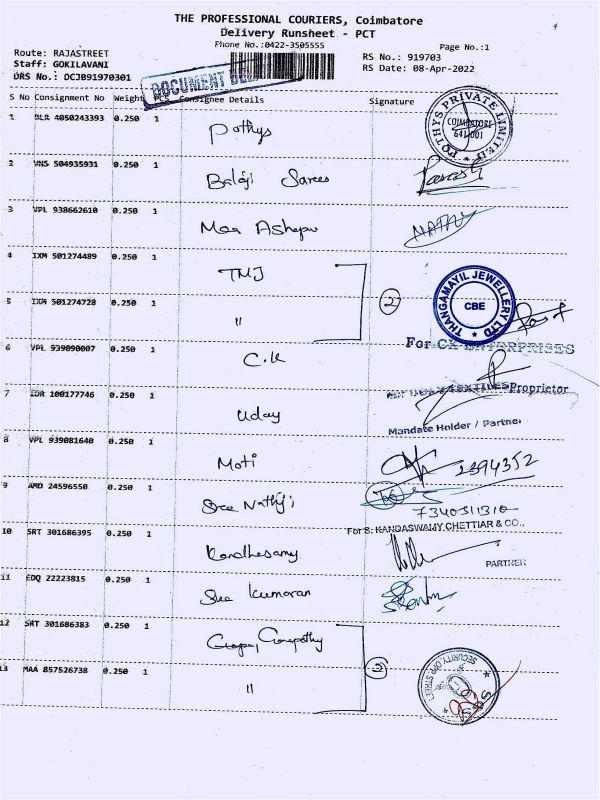 THE PROFESSIONAL COURIERS, Coimbatore
Delivery Runsheet - PCT
Phone No.:0422-3505555
Page No.:1
Route: RAJASTREET
Staff: GOKILAVANI
DRS No.: DCJB91970301
RS No.: 919703
RS Date: 08-Apr-2022
DOCUMENT
S No Consignment No Weight PCS Consignee Details Signature
1 BLR 4050243393 0.250 1 Pothys
POTHYS PRIVATE LIMITED COIMBATORE 641 001
2 VNS 504935931 0.250 1 Balaji Sarees
3 VPL 938662610 0.250 1 Maa
4 IXM 501274489 0.250 1 TMJ
2
THANGAMAYIL JEWELLERY LTD CBE
5 IXM 501274728 0.250 1 "
For CK ENTERPRISES
6 VPL 939090007 0.250 1 C.K
Proprietor
7 IDR 100177746 0.250 1 Uday
Mandate Holder / Partner
8 VPL 939081640 0.250 1 Moti
2394352
9 AMD 24596550 0.250 1 Sree Nathji
7340311310
For S. KANDASWAMY CHETTIAR & CO.,
10 SRT 301686395 0.250 1 Kandhasamy
PARTNER
11 EDQ 22223815 0.250 1 Sree Kumaran
12 SRT 301686383 0.250 1 Ganapathy
2
13 MAA 857526738 0.250 1 "